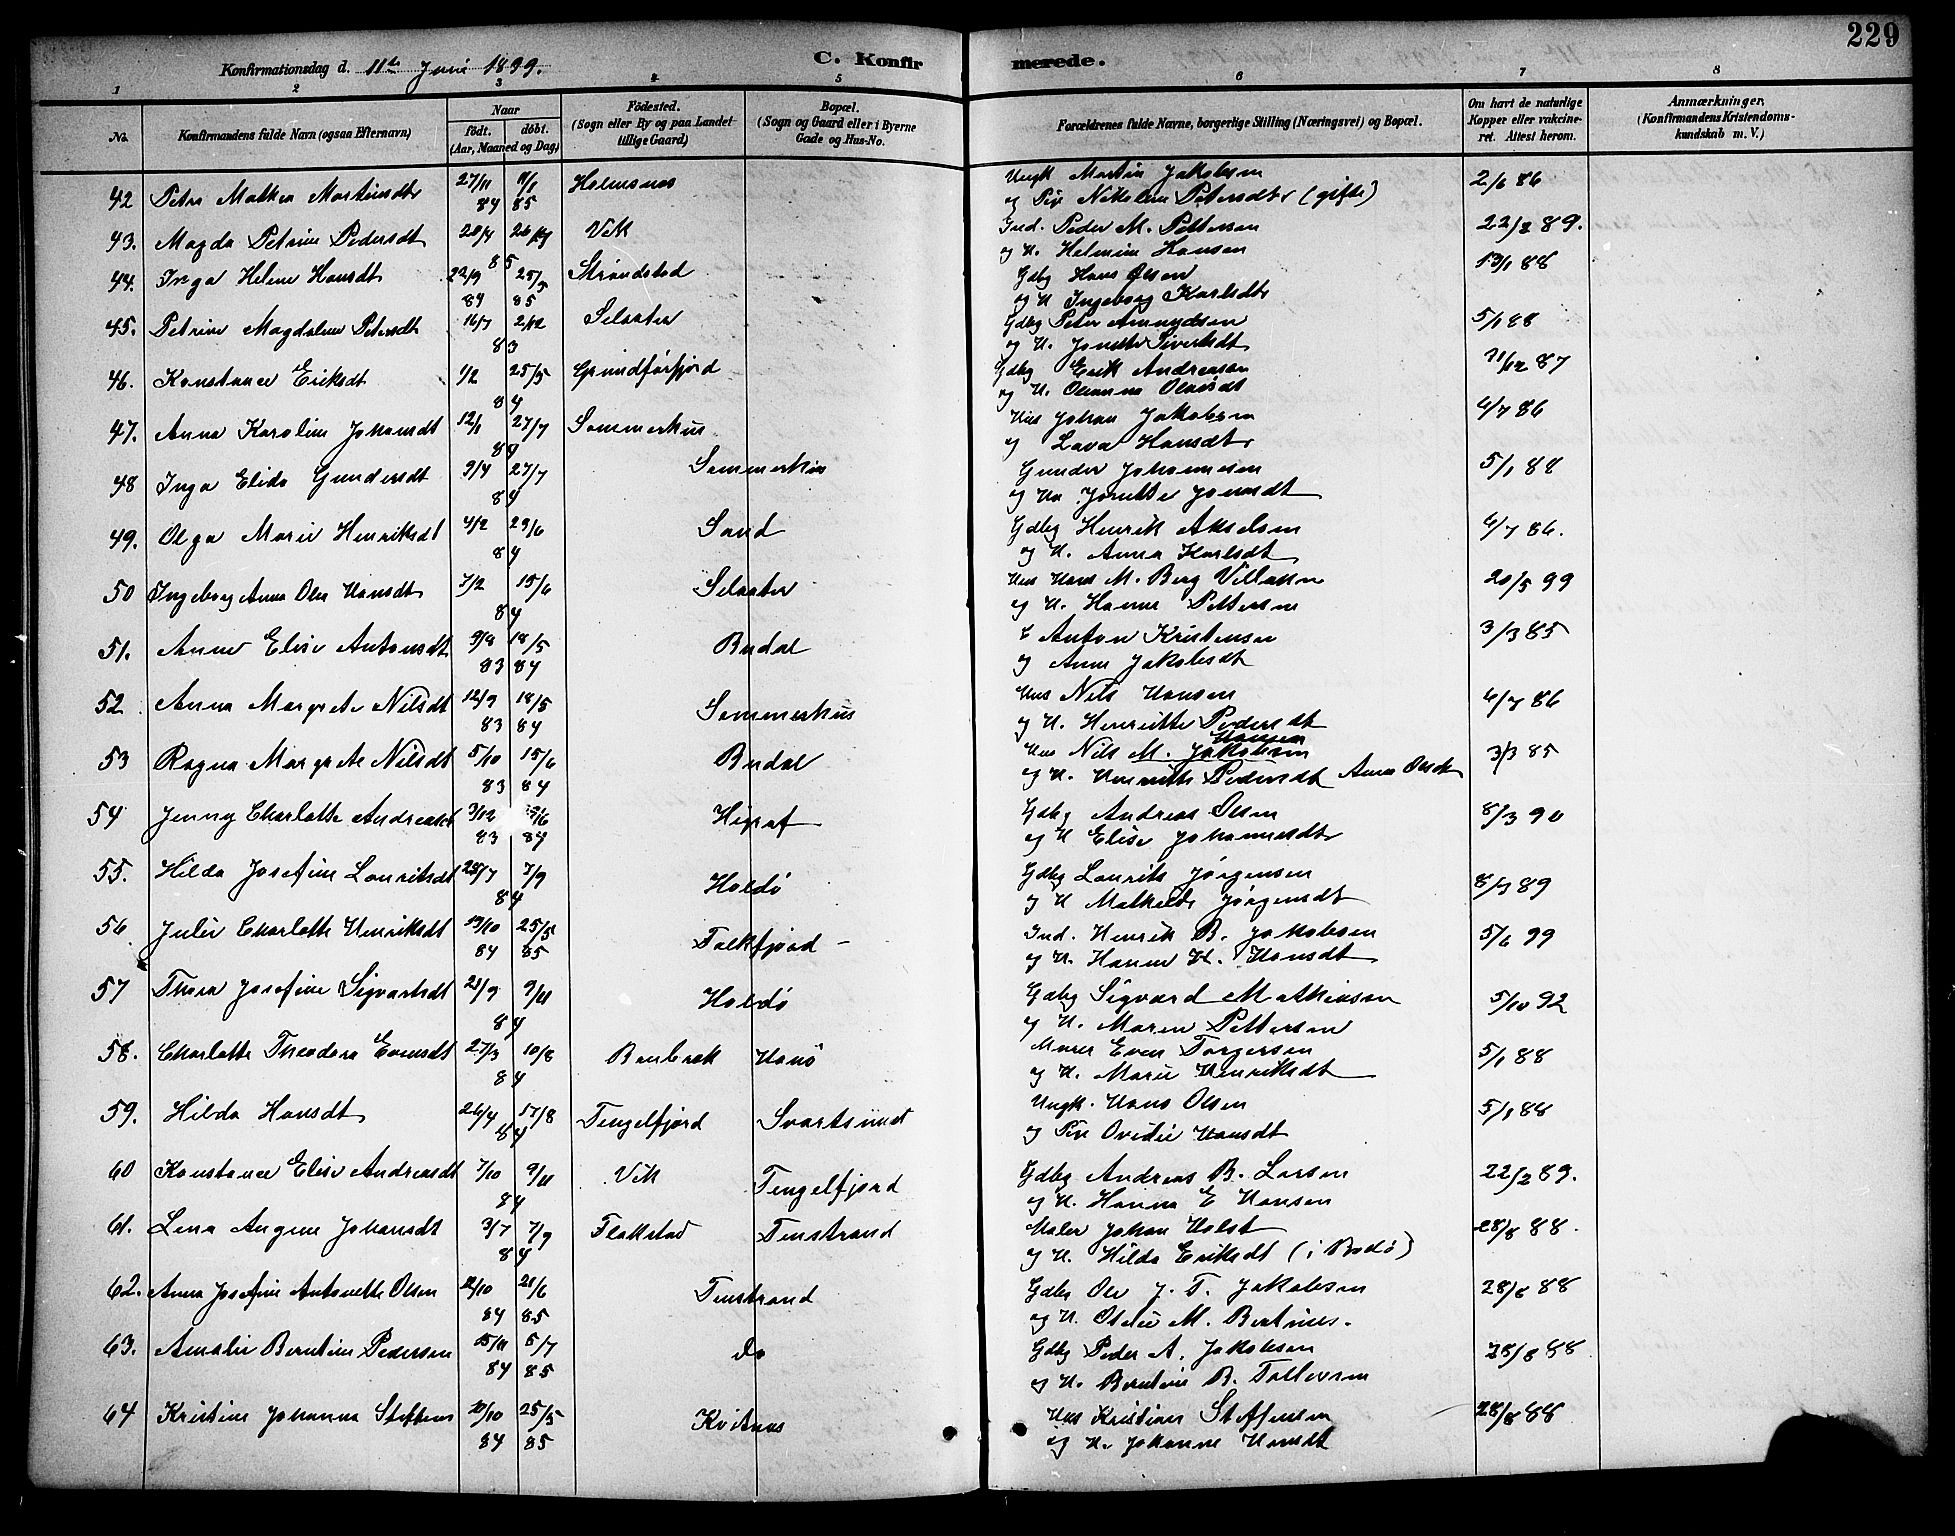 229
Konfirmationsdag d. 11te Juni 1899. C. Konfirmerede.
1 2 3 4 5 6 7 8
No. Konfirmandens fulde Navn (ogsaa Efternavn) Naar födt. döbt. (Aar, Maaned og Dag) Födested. (Sogn eller By og paa Landet tillige Gaard) Bopæl. (Sogn og Gaard eller i Byerne Gade og Hus-No. Forældrenes fulde Navne, borgerlige Stilling (Næringsvei) og Bopæl. Om havt de naturlige Kopper eller vakcineret. Attest herom. Anmærkninger, (Konfirmandens Kristendomskundskab m. V.)
42 Petra Mathea Martinsdtr 27/11 84 11/1 85 Holmsnes Ungk Martin Jakobsen 2/6 86
og Pige Nikoline Petersdtr (gifte)
43. Magda Petrine Pedersdt 20/4 85 Vik Ind. Peder M. Pettersen 22/2 89.
og H. Helmine Hansen
44. Inga Helene Hansdt 22/9 84 25/5 85 Strandstad Gdbg Hans Olsen 13/1 88
og H Ingeborg Karlsdtr
45. Petrine Magdalene Petersdt 16/7 2/12 83 Selaater Gdbg Peter Amundsen 5/1 88
og H. Sivertsdt
46. Konstance Eriksdt 1/2 25/5 84 Grundförfjord Gdbg Erik Andreasen 21/12 87
og H. Oleanna Olaisdt
47. Anna Karoline Johansdt 12/1 27/7 84 Sommerhus Hus Johan Jakobsen 4/7 86
og Lava Hansdtr
48 Inga Elida Gundersdt 9/4 27/7 84 Sommerhus Gunder Johannesen 5/1 88
og Hu Jonette Jonasdt
49. Olga Marie Henriksdt 4/2 29/6 84 Sand Gdbg Henrik Akselsen 4/7 86.
og H. Anna Karlsdt
50 Ingeborg Anna Olea Hansdt 7/2 15/6 84 Selaater Hus Hans M. Berg Villaksen 20/5 99
og H. Hanna Pettersen
51. Anna Elise Antonsdt 9/8 83 18/5 84 Budal Anton Kristensen 3/3 85
og Anna Jakobsdt
52 Anna Margrete Nilsdt 12/9 83 18/5 84 Sommerhus Hus Nils Hansen 4/7 86
og H. Henriette Pedersdt
53 Ragna Margrete Nilsdt 5/10 83 15/6 84 Budal Hus Nils M. Jakobsen Hansen 3/3 85
og H. Henriette Pedersdt Anna Olsdt
54 Jenny Charlotte Andreasdt 3/12 83 84 Higraf Gdbg Andreas Olsen 8/3 90
og H Elise Johannesdt
55. Hilda Josefine Lauritsdt 28/7 7/9 84 Holdö Gdbg Laurits Jørgensen 89
og H Mathilde Jørgensdt
56 Julie Charlotte Henriksdt 13/10 84 25/5 85 Falkfjord – Ind. Henrik B. Jakobsen 5/6 99
og H. Hanna H. Hansdt
57 Thora Josefine Sigvartsdt 9/11 84 Holdö Gdbg Sigvard Mathiasen 5/10 92
og H. Maren Pettersen
58. Charlotte Theodora Evensdt 27/3 10/8 84 Hanö Murer Even Torgersen 5/1 88
og H. Marie Henriksdt
59. Hilda Hansdt 26/4 17/8 84 Tengelfjord Svartsund Ungk. Hans Olsen 5/1 88
og Pige Ovidie Hansdt
60 Konstance Elise Andreasdt 7/10 9/11 84 Vik Tengelfjord Gdbg Andreas B. Larsen 22/2 89.
og H. Hanna E Hansen
61. Lena Angine Johansdt 3/7 7/9 84 Flakstad Finstrand Maler Johan Holst 28/8 88.
og H. Hilda Eriksdt (i Bodö)
62. Anna Josefine Antonette Olsen 12/10 84 21/6 85 Finstrand Gdbg Ole J. T. Jakobsen 28/8 88
og H. Otelie M. Bertines.
63. Amalie Berntine Pedersen 15/11 84 5/7 85 do Gdbg Peder A. Jakobsen 28/8 88
og H. Berntine B. Tollevsen
64 Kristine Johanna Steffens 84 25/5 85 Kvitnes Hus Kristian Steffensen 28/8 88
og H. Johanne Hansdt